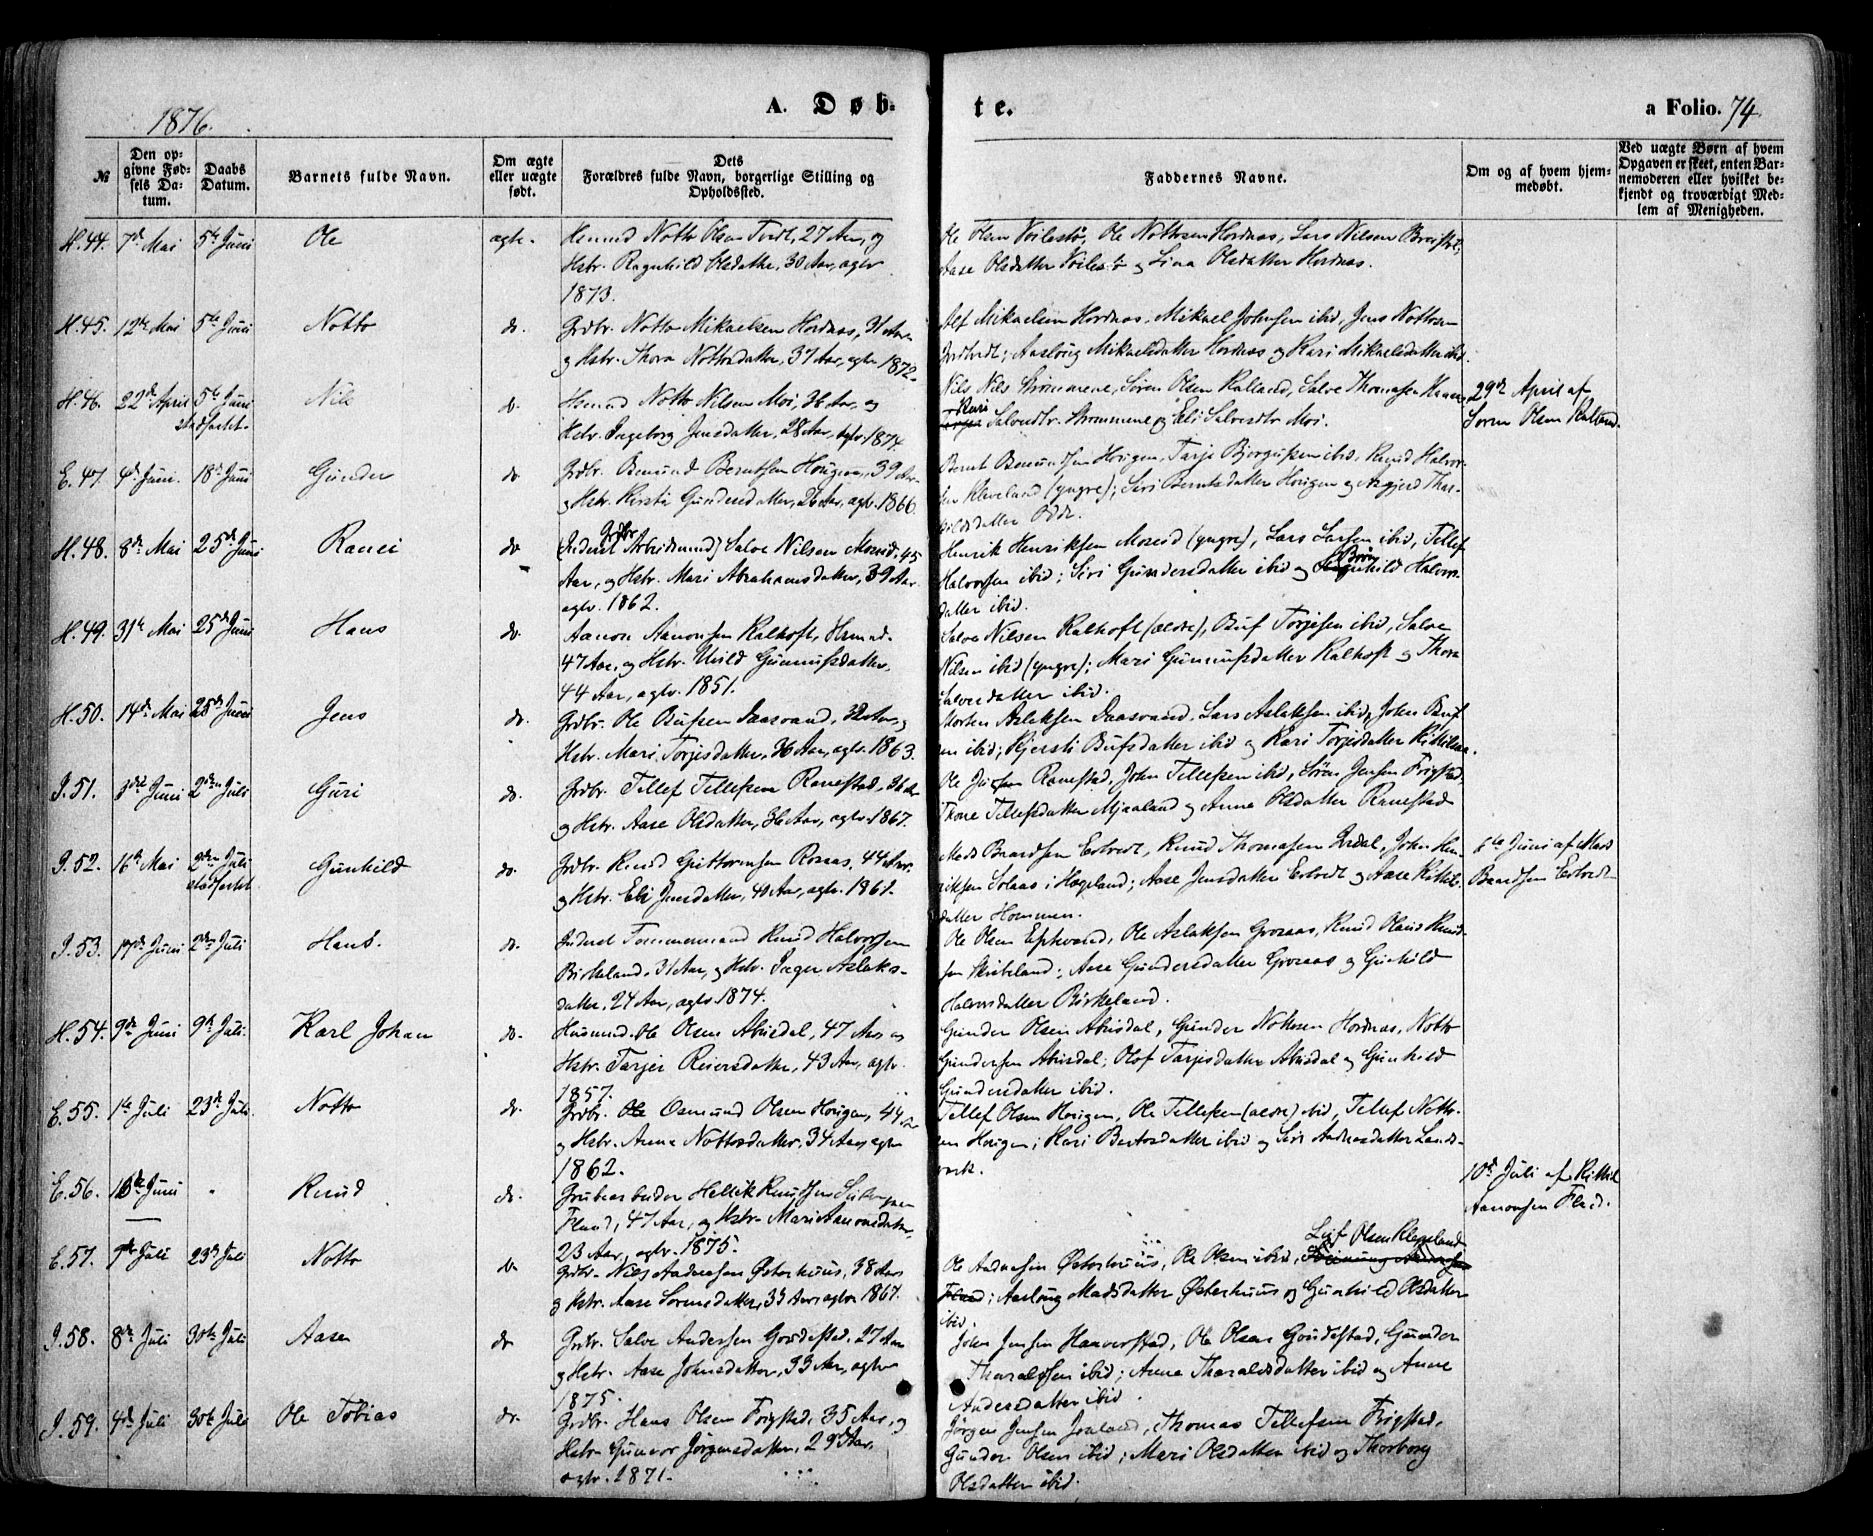 1876.
A. Døb-
te.
a Folio. 74.
№
Den op-
givne Fød-
sels Da-
tum.
Daabs
Datum.
Barnets fulde Navn.
Om ægte
eller uægte
født.
Dets
Forældres fulde Navn, borgerlige Stilling og
Opholdssted.
Faddernes Navne.
Om og af hvem hjem-
medøbt.
Ved uægte Børn af hvem
Opgaven er skeet, enten Bar-
nemoderen eller hvilket be-
kjendt og troværdigt Med-
lem af Menigheden.
H. 44. 7de Mai 5te Juni Ole ægte. Notto Olsen Tvedt, 27 Aar, og
Hstr. Ragnhild Olsdatter, 30 Aar, agtv
1873.
Ole Olsen Ole Nottosen Hordnes, Lars Nilsen
Aase Olsdatter og Olsdatter Hordnes.
H. 45. 12te Mai 5te Juni Notto do. Grdbr. Notto Mikaelsen Hordnes, 31 Aar
og Hstr. Thora Nottosdatter, 37 Aar, agtv 1872.
Alf Mikaelsen Hordnes, Mikael Johnsen ibid, Jens Nottosen
Aaslaug Mikaelsdatter Hordnes og Kari Mikaelsdatter ibid.
H. 46. 22de April 5te Juni Nils do. Notto Nilsen Moi, 36 Aar, og
stadfæstet.
Hstr. Ingeborg Jensdatter, 28 Aar, agtv. 1874.
Nils Nils Strømmene, Søren Olsen Kalland, Salve Thomassen
Kari Salvesdtr. Strømmene og Eli Salvesdtr Moi.
29de April af
Søren Olsen Kalland.
E. 47. 4de Juni. 18de Juni Gunder do. Grdbr. Berntsen Horigen, 39 Aar
og Hstr. Kirsti Gundersdatter, 26 Aar, agtv. 1866.
Bernt Horigen, Tarje ibid, Knud Halvor-
sen Kleveland (yngre); Siri Berntsdatter Horigen og Asgjerd Thar-
aldsdatter Odde.
H. 48. 8de Mai 25de Juni Ranei do Grdbr
(Inderst Arbeidsmand) Salve Nilsen 45
Aar, og Hstr. Mari Abrahamsdatter, 39 Aar
agtv. 1862.
Henrik Henriksen (yngre), Lars Larsen ibid, Tellef
Halvorsen ibid; Siri Gundersdatter ibid og Halvors-
datter ibid.
H. 49. 31te Mai 25de Juni Hans do. Aanon Aanonsen Kalhoft, Husmd.
47 Aar, og Hstr. Gunnufsdatter,
44 Aar, agtv. 1851.
Salve Nilsen Kalhoft (ældre), Buf Torjesen ibid, Salve
Nilsen ibid (yngre); Mari Gunnufsdatter Kalhoft og Thora
Salvesdatter ibid.
H. 50. 14de Mai 25de Juni Jens do. Grdbr. Ole Bufsen Daasvand, 38 Aar, og
Hstr. Mari Torjesdatter, 36 Aar, agtv 1863.
Morten Aslaksen Daasvand, Lars Aslaksen ibid, John Buf
sen ibid; Kjersti Bufsdatter ibid og Kari Torjesdatter
I. 51. 3die Juni 2den Juli Guri do. Grdbr. Tellef Tellefsen Ranestad, 36 Aar
og Hstr. Aase Olsdatter, 36 Aar, agtv. 1867.
Ole Ranestad, John Tellefsen ibid, Søren Jensen Frigstad,
Thone Tellefsdatter Mjaaland og Anne Olsdatter Ranestad
I. 52. 16de Mai 2den Juli Gunhild do. Grdbr. Knud Guttormsen Rosaas, 44 Aar
stadfæstet
og Hstr. Eli Jensdatter, 40 Aar, agtv. 1861.
Mads Baardsen Knud Thomassen John Hen-
riksen Solaas i Hægeland; Aase Jensdatter og Aase Kittels-
datter Hommen.
6te Juni af Mads
Baardsen
I. 53. 17de Juni 2den Juli Hans. do. Inderst Tømmermand Knud Halvorsen
Birkeland, 31 Aar, og Hstr. Inger Aslaks-
datter, 24 Aar, agtv. 1874.
Ole Olsen Eptevand, Ole Aslaksen Groraas, Knud Olaus Knud-
sen Skibeland; Aase Gundersdatter Groraas og Gunhild
Halvorsdatter Birkeland.
H. 54. 9de Juni 9de Juli. Karl Johan do. Husmd. Ole Olsen Abusdal, 47 Aar og
Hstr. Tarjer Reiersdatter, 43 Aar, agtv.
1857.
Gunder Olsen Abusdal, Gunder Nottosen Hordnes, Notto
Gundersen Abusdal; Olof Tarjesdatter Abusdal og Gunhild
Gundersdatter ibid.
E. 55. 1te Juli 23de Juli. Notto do. Grdbr. Osmund Olsen Horigen, 44 Aar
og Hstr. Anne Nottosdatter, 34 Aar, agtv
1862.
Tellef Olsen Horigen, Ole Tellefsen (ældre) ibid, Tellef Notto-
sen Horigen; Kari Bertosdatter ibid og Siri Andreasdatter Lands-
verk.
E. 56. 16de Juni " Knud do. Grubearbeider Hellik Knudsen
Flaad, 47 Aar, og Hstr. Mari Aanonsdatter,
23 Aar, agtv. 1875.
10de Juli af Kittil
Aanonsen Flaad.
E. 57. 7de Juli 23de Juli Notto do. Grdbr. Niels Andersen Østerhuus, 38 Aar
og Hstr. Aase Sørensdatter, 33 Aar, agtv 1867.
Leif Olsen Kleveland
Ole Andersen Østerhuus, Ole Olsen ibid,
Flaad; Aaslaug Madsdatter Østerhuus og Gunhild Olsdatter
ibid.
I. 58. 8de Juli 30te Juli Aasen do Grdbr. Salve Andersen Goudestad, 27 Aar
og Hstr. Aase Johnsdatter, 33 Aar, agtv
1875.
John Jensen Haaverstad, Ole Olsen Goudestad, Gunder
Tharaldsen ibid; Anne Tharaldsdatter ibid og Anne
Andersdatter ibid.
I. 59. 4de Juli 30te Juli Ole Tobias do. Grdbr. Hans Olsen Frigstad, 35 Aar, og
Hstr. Gunvor Jørgensdatter, 29 Aar,
agtv. 1871.
Jørgen Jensen Thomas Tellefsen Frigstad,
Gunder Olsen ibid; Mari Olsdatter ibid og Thorborg
Olsdatter ibid.